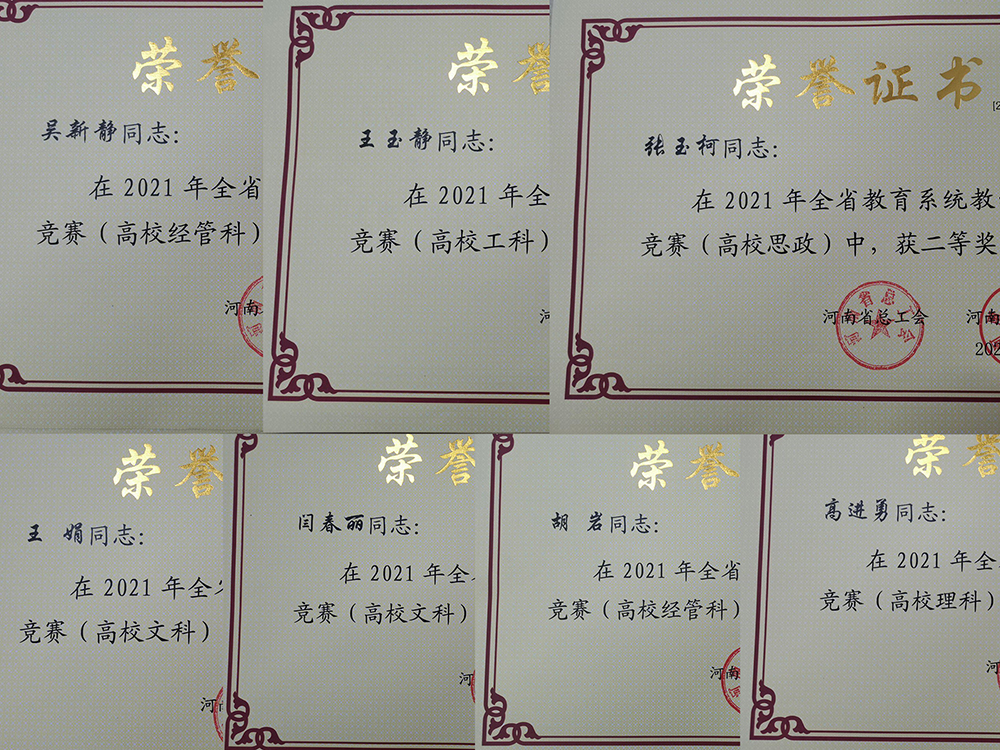 荣誉
吴新静同志：
在 2021 年全省
竞赛（高校经管科）
河南
荣誉
王玉静同志：
在 2021 年全
竞赛（高校工科）
河
荣誉证书
[2
张玉柯同志：
在 2021 年全省教育系统教
竞赛（高校思政）中，获二等奖
河南省总工会 河南
202
荣誉
王 娟同志：
在 2021 年全
竞赛（高校文科）
河南
荣誉
闫春丽同志：
在 2021 年全
竞赛（高校文科）
河
荣誉
胡 岩同志：
在 2021 年全省
竞赛（高校经管科）
河南
荣誉
高进勇同志：
在 2021 年全
竞赛（高校理科）
河